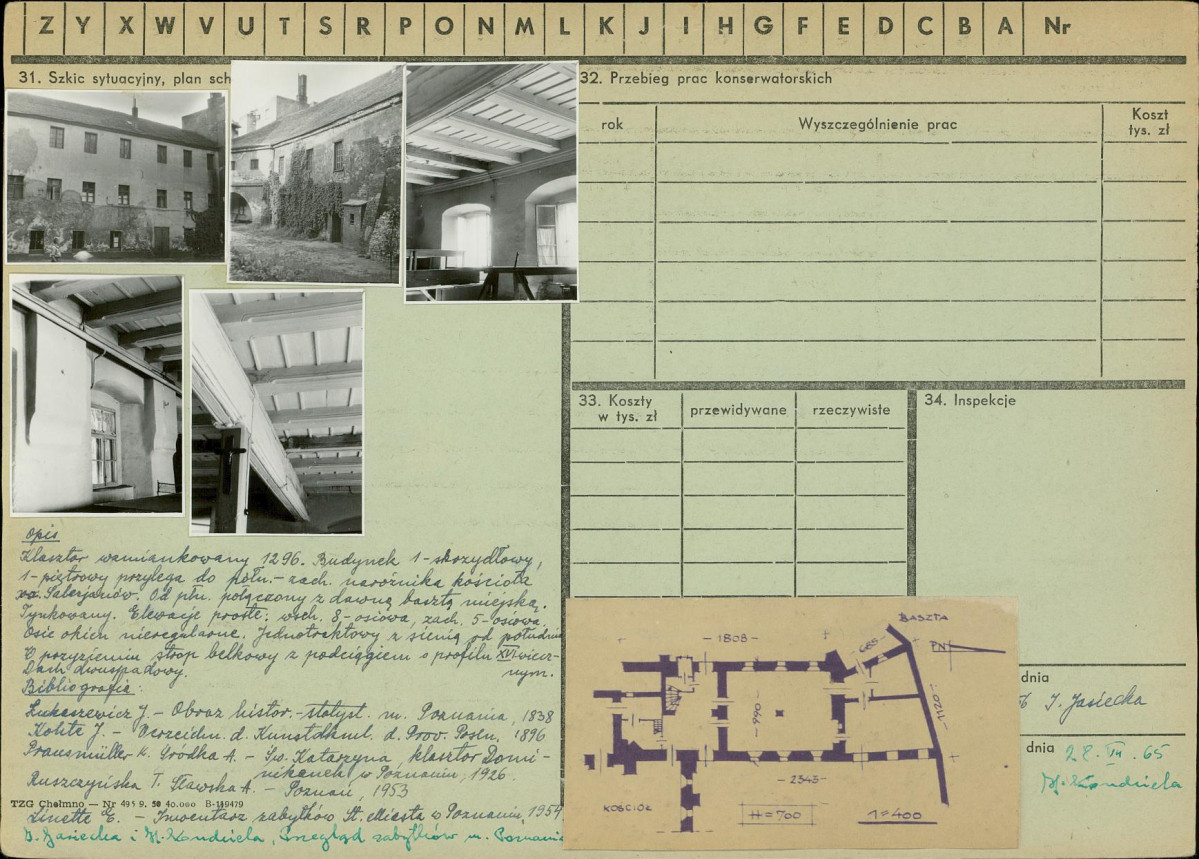 Z Y X W V U T S R P O N M L K J I H G F E D C B A Nr
31. Szkic sytuacyjny, plan sch
32. Przebieg prac konserwatorskich
rok
Wyszczególnienie prac
Koszt
tys. zł
33. Koszty
w tys. zł
przewidywane
rzeczywiste
34. Inspekcje
Opis
Klasztor wzmiankowany 1296. Budynek 1-skrzydłowy,
1-piętrowy przylega do połn.-zach. narożnika kościoła
xx. Salezjanów. Od płn. połączony z dawną basztą miejską.
Tynkowany. Elewacje proste: wsch. 8-osiowa, zach. 5-osiowa.
Osie okien nieregularne. Jednotraktowy z sienią od południa
W przyziemiu strop belkowy z podciągiem o profilu XVI wiecz-
nym.
Dach dwuspadowy.
Bibliografia:
Łukaszewicz J. - Obraz histor.-statyst. m. Poznania, 1838
Kohte J. - Verzeichn. d. Kunstdkml. d. Prov. Posen, 1896
Grodka A. - Św. Katarzyna, klasztor Domi-
nikanek w Poznaniu, 1926.
Ruszczyńska T. Sławska A. - Poznań, 1953
TZG Chełmno — Nr 4959. 50 40.000 B-119479
Linette E. - Inwentarz zabytków St. Miasta w Poznaniu, 1954
I. Jasiecka i H. Kondziela, Przegląd zabytków m. Poznania
BASZTA
PN
1808
685
1021
990
2343
KOŚCIÓŁ
H=700
1=400
dnia
I. Jasiecka
dnia
28. VI. 65
H. Kondziela